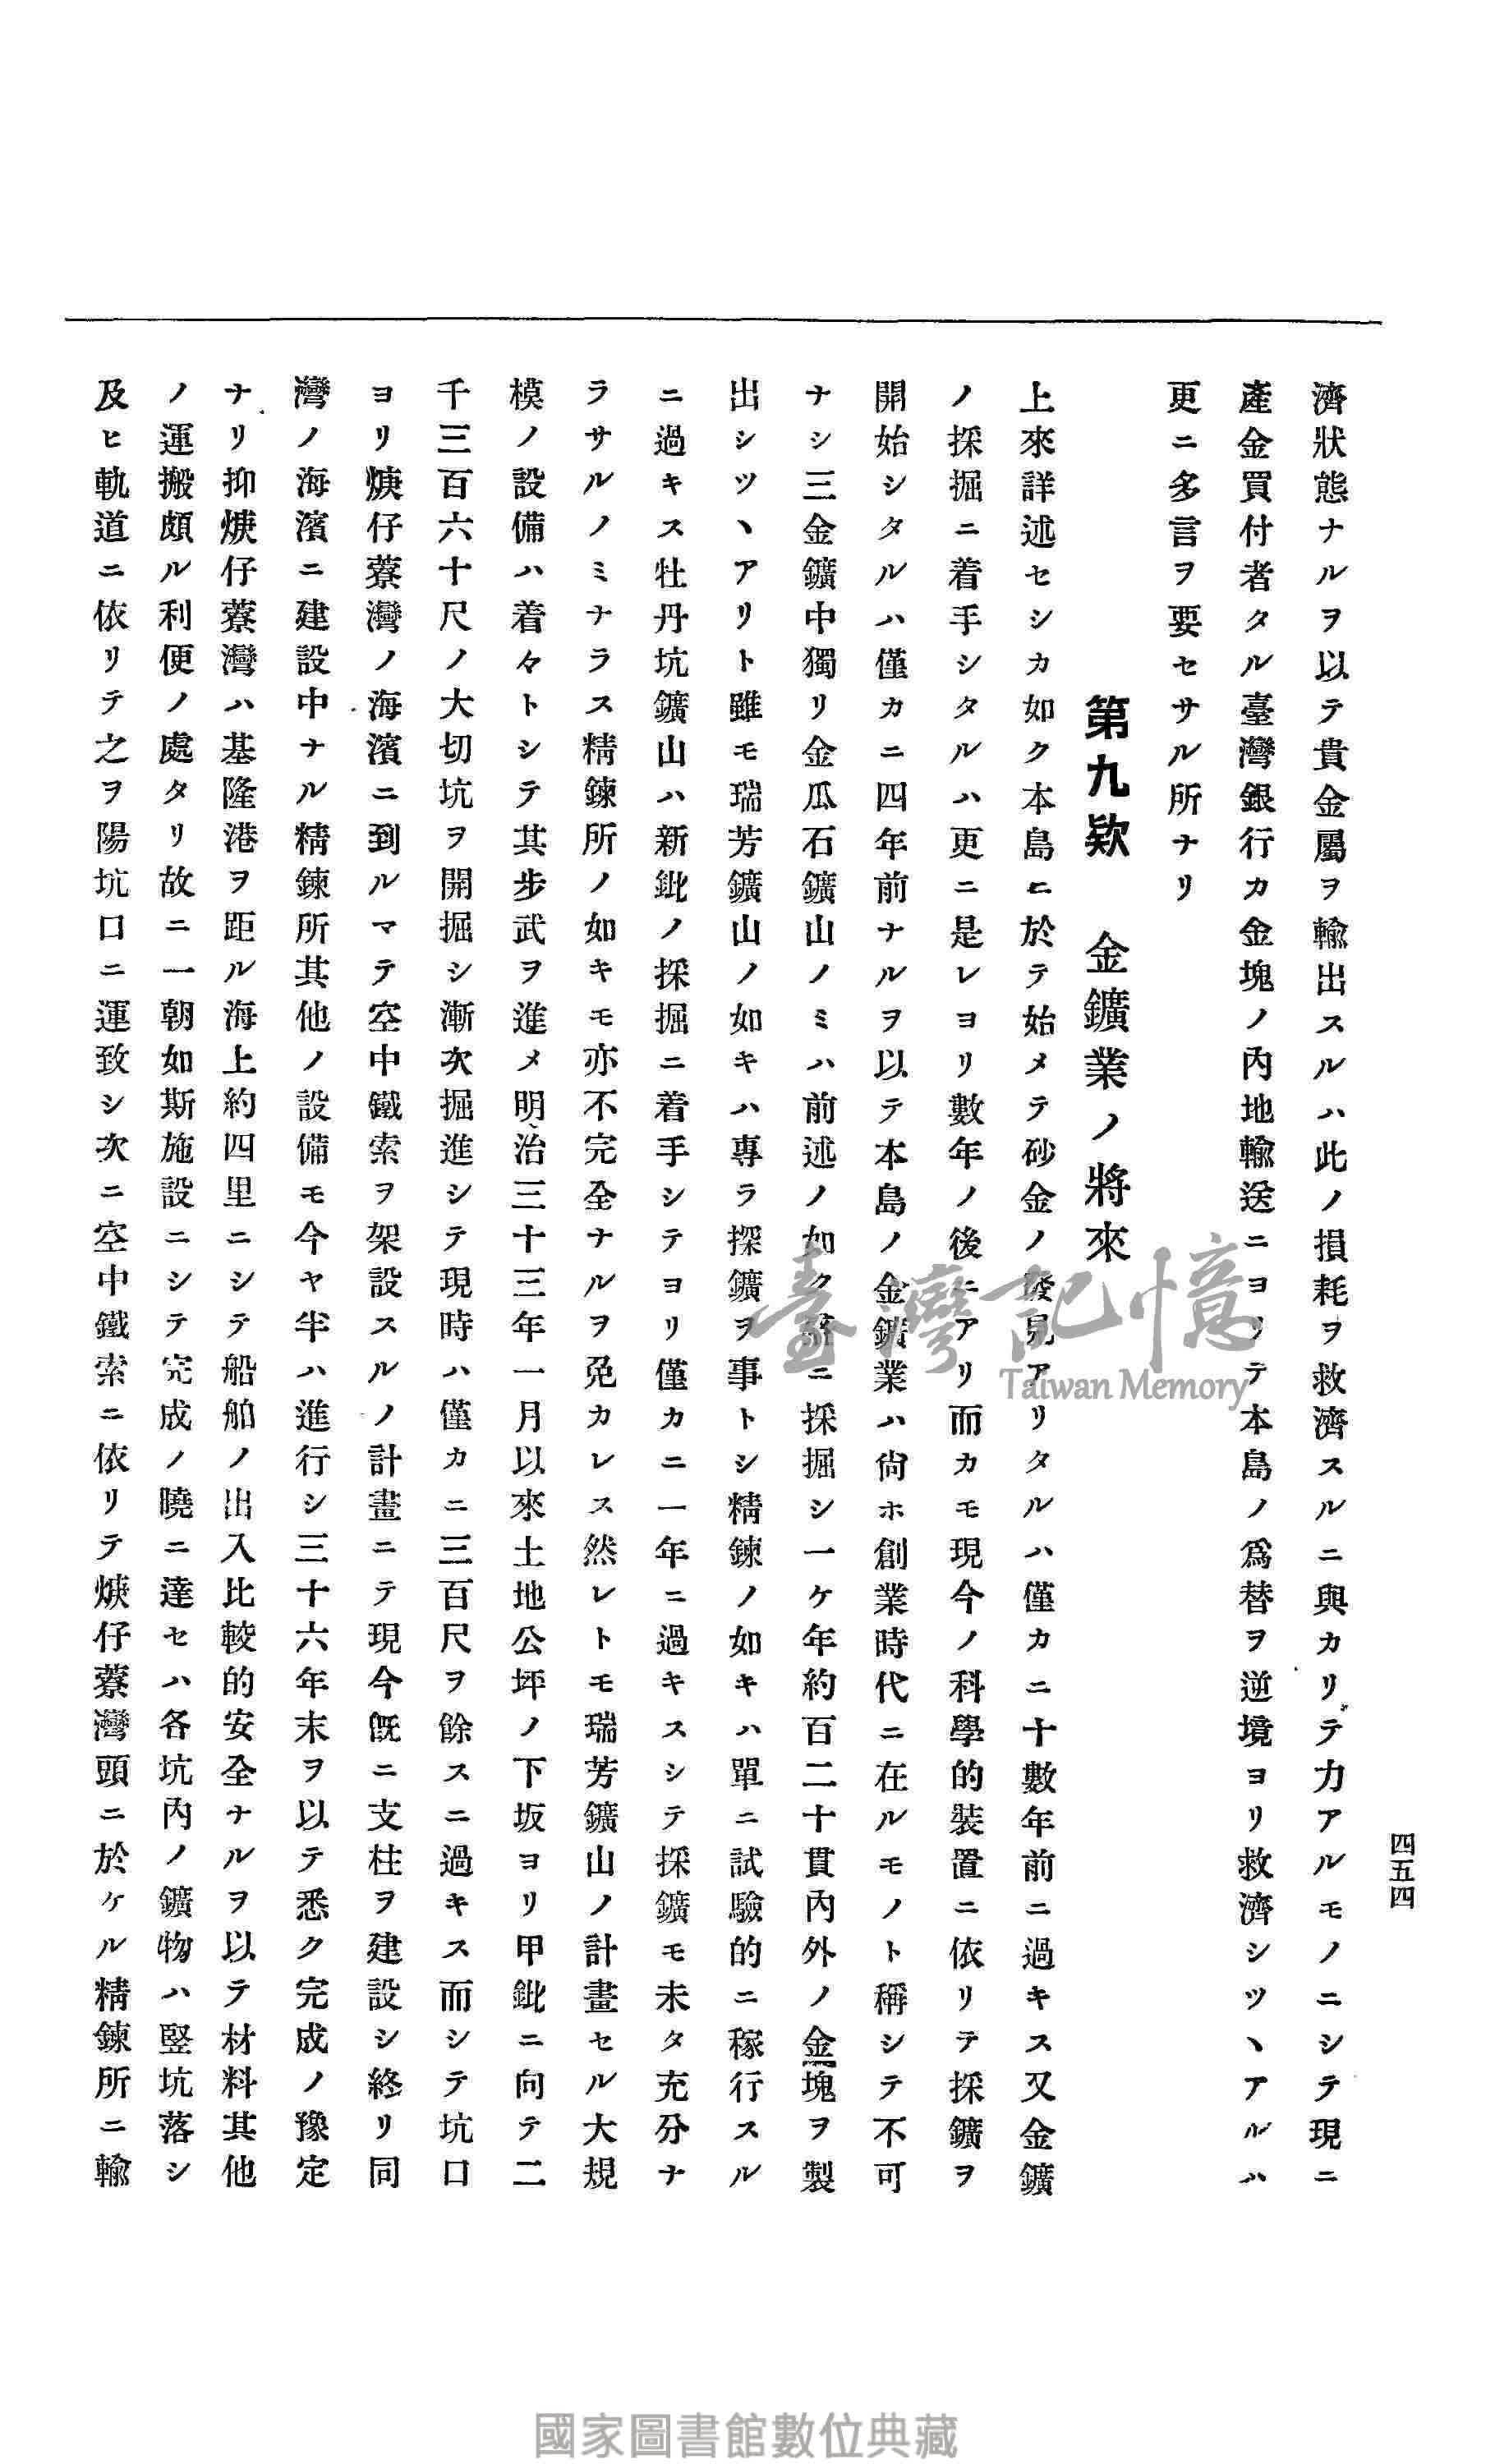 四五四
濟狀態ナルヲ以テ貴金屬ヲ輸出スルハ此ノ損耗ヲ救濟スルニ與カリテ力アルモノニシテ現ニ
產金買付者タル臺灣銀行カ金塊ノ內地輸送ニヨリテ本島ノ爲替ヲ逆境ヨリ救濟シツヽアルハ
更ニ多言ヲ要セサル所ナリ
第九欵 金鑛業ノ將來
上來詳述セシカ如ク本島ニ於テ始メテ砂金ノ發見アリタルハ僅カニ十數年前ニ過キス又金鑛
ノ採掘ニ着手シタルハ更ニ是レヨリ數年ノ後ニアリ而カモ現今ノ科學的裝置ニ依リテ採鑛ヲ
開始シタルハ僅カニ四年前ナルヲ以テ本島ノ金鑛業ハ尙ホ創業時代ニ在ルモノト稱シテ不可
ナシ三金鑛中獨リ金瓜石鑛山ノミハ前述ノ如ク盛ニ採掘シ一ケ年約百二十貫內外ノ金塊ヲ製
出シツヽアリト雖モ瑞芳鑛山ノ如キハ專ラ探鑛ヲ事トシ精鍊ノ如キハ單ニ試驗的ニ稼行スル
ニ過キス牡丹坑鑛山ハ新鈚ノ採掘ニ着手シテヨリ僅カニ一年ニ過キスシテ採鑛モ未タ充分ナ
ラサルノミナラス精鍊所ノ如キモ亦不完全ナルヲ免カレス然レトモ瑞芳鑛山ノ計畫セル大規
模ノ設備ハ着々トシテ其步武ヲ進メ明治三十三年一月以來土地公坪ノ下坂ヨリ甲鈚ニ向テ二
千三百六十尺ノ大切坑ヲ開掘シ漸次掘進シテ現時ハ僅カニ三百尺ヲ餘スニ過キス而シテ坑口
ヨリ焿仔藔灣ノ海濱ニ到ルマテ空中鐵索ヲ架設スルノ計畫ニテ現今既ニ支柱ヲ建設シ終リ同
灣ノ海濱ニ建設中ナル精鍊所其他ノ設備モ今ヤ半ハ進行シ三十六年末ヲ以テ悉ク完成ノ豫定
ナリ抑焿仔藔灣ハ基隆港ヲ距ル海上約四里ニシテ船舶ノ出入比較的安全ナルヲ以テ材料其他
ノ運搬頗ル利便ノ處タリ故ニ一朝如斯施設ニシテ完成ノ曉ニ達セハ各坑內ノ鑛物ハ竪坑落シ
及ヒ軌道ニ依リテ之ヲ陽坑口ニ運致シ次ニ空中鐵索ニ依リテ焿仔藔灣頭ニ於ケル精鍊所ニ輸
臺灣記憶
Taiwan Memory
國家圖書館數位典藏